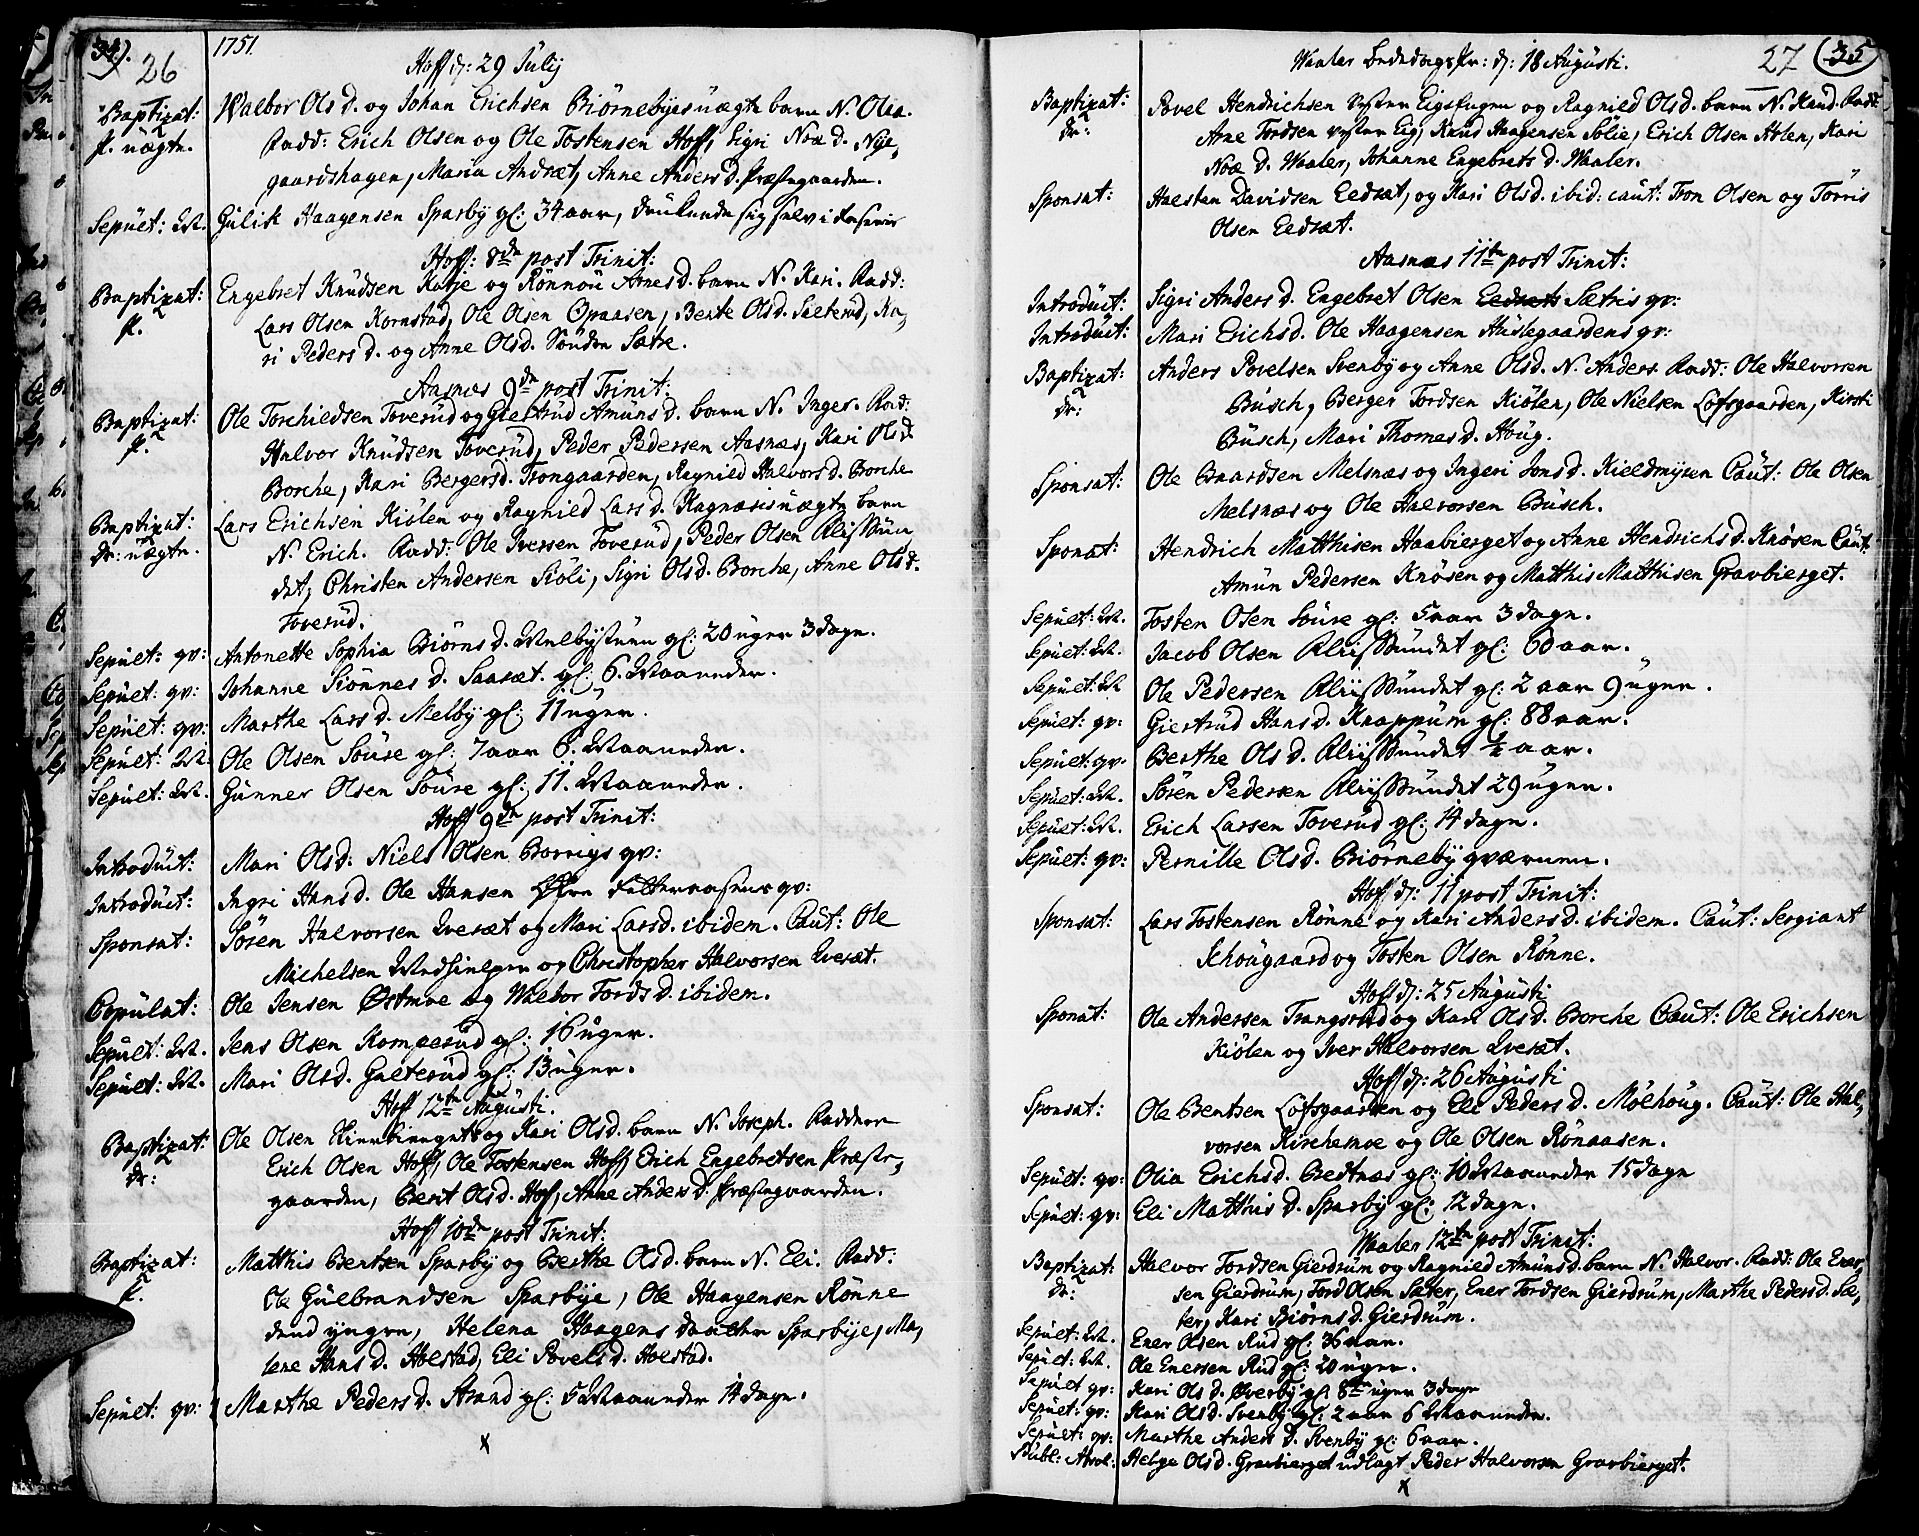 34).
26
1751.
Hoff d: 29 Julij
Baptizat: Walbor Ols d. og Johan Erichsen Biörnebyes uægte barn N. Olia.
p. uægte. Fadd: Erich Olsen og Ole Tostensen Hoff, Sigri Noæ d. Nye,
gaardshagen, Maria Andræt, Anne Anders d. Præstegaarden.
Sepult: M. Gulik Haagensen Sparby gl: 34 aar, druknede sig selv i
Hoff: 8de post Trinit:
Baptizat: Engebret Knudsen Katje og Rönnou Arnes d. barn N. Kari. Fadd:
p. Lars Olsen Kornstad, Ole Olsen Opaasen, Berte Ols d. Sæterud, Ka,
ri Peders d. og Anne Ols d. Söndre Sætre.
Aasnes 9de post Trinit:
Baptizat: Ole Torchieldsen Toverud og Giertrud Amuns d. barn N. Inger. Fad:
p. Halvor Knudsen Toverud, Peder Pedersen Aasnæs, Kari Ols d.
Borche, Kari Bergers d. Trongaarden, Ragnild Halvors d. Borche
Baptizat: Lars Erichsen Kiölen og Ragnild Lars d. Hagnæsis uægte barn
dr: uægte. N. Erich. Fadd: Ole Iversen Toverud, Peder Olsen Flissun,
det, Christen Andersen Siöli, Sigri Ols d. Borche, Anne Ols d.
Toverud.
Sepult: qv: Antonette Sophia Biörns d. Melbystuen gl: 20 uger 3 dage.
Sepult: qv: Johanne Siönnes d. Saaræt. gl: 6. Maaneder.
Sepult: qv: Marthe Lars d. Melby gl: 11 uger.
Sepult: M. Ole Olsen Soure gl: 7 aar 6. Maaneder.
Sepult: M. Gunner Olsen Soure gl: 11. Maaneder.
Hoff 9de post Trinit:
Introduct: Mari Ols d: Niels Olsen Borrigs qv:
Introduct: Ingri Hans d. Ole Hansen Øfre qv:
Sponsat: Sören Halvorsen Qveræt og Mari Lars d. ibidem. Caut: Ole
Michelsen og Christopher Halvorsen Qveræt.
Copulat: Ole Jensen Østmoe og Walbor Tords d. ibidem.
Sepult: M. Jens Olsen Kompærud gl: 16 uger.
Sepult: M. Mari Ols d. Gulterud gl: 13 uger.
Hoff 12te Augusti.
Baptizat: Ole Olsen og Kari Ols d. barn N. Joseph. Faddere
dr: Erich Olsen Hoff, Ole Tostensen Hoff, Erich Engebretsen Præste,
gaarden, Berit Ols d. Hof, Anne Anders d. Præstegaarden.
Hoff 10de post Trinit:
Baptizat: Matthis Bentsen Sparby og Berthe Ols d. barn N. Eli. Fadd:
p. Ole Gulbrandsen Sparbye, Ole Haagensen Rönne
dend yngre, Helena Haagens daatter Sparbye, Ma,
lene Hans d. Holstad, Eli Povels d. Holstad.
Sepult: qv: Marthe Peders d. Strand gl: 5 Maaneder 14 dage.
x
27
(35
Waaler Bededags d: 18 Augusti.
Baptizat: Povel Hendrichsen og Ragnild Ols d. barn N. Knud. Fadd:
dr: Arne Tordsen Eig, Knud Haagensen Sölie, Erich Olsen Holen, Kari
Noæ d. Waaler, Johanne Engebrets d. Waaler.
Sponsat: Halsten Davidsen Eedsæt, og Kari Ols d. ibid: caut: Tron Olsen og Torris
Olsen Eedsæt.
Aasnæs 11te post Trinit:
Introduct: Sigri Anders d. Engebret Olsen Eedsæts Sætris qv:
Introduct: Mari Erichs d. Ole Haagensen Huslegaardens qv:
Baptizat: Anders Povelsen Svenby og Anne Ols d. N. Anders. Fadd: Ole Halvorsen
dr: Busch, Berger Tordsen Kiölen, Ole Nielsen Lofsgaarden, Kirsti
Busch, Mari Thomes d. Houg.
Sponsat: Ole Baardsen Melsnæs og Ingeri Jons d. Kieldmyren Caut: Ole Olsen
Melsnæs og Ole Halvorsen Busch.
Sponsat: Hendrich Matthisen Haabierget og Anne Hendrichs d. Knösen Caut:
Amun Pedersen Knösen og Matthis Matthisen Gravbierget.
Sepult: M. Tosten Olsen Soure gl: 5 aar 3 dage.
Sepult: M. Jacob Olsen Flissundet gl: 6 aar.
Sepult: M Ole Pedersen Flissundet gl: 2 aar 9 uger.
Sepult: qv: Giertrud Hans d. Knappum gl: 88 aar.
Sepult: qv. Berthe Ols d. Flissundet ½ aar.
Sepult: M. Sören Pedersen Flissundet 29 uger.
Sepult: M. Erich Larsen Toverud gl: 14 dage.
Sepult: qv: Pernille Ols d. Biörneby qværnen.
Hoff d: 11 post Trinit:
Sponsat: Lars Tostensen Rönne og Kari Anders d. ibidem. Caut: Sergiant
Schougaard og Tosten Olsen Rönne.
Hoff d: 25 Augusti
Sponsat: Ole Andersen Trangsrud og Kari Ols d. Borche Caut: Ole Erichsen
Kiölen og Iver Halvorsen Qveræt.
Hoff d: 26 Augusti
Sponsat: Ole Bentsen Lofsgaarden og Eli Peders d. Mölhoug. Caut: Ole Hal,
vorsen Kirchemoe og Ole Olsen Rönaasen.
Sepult: qv: Olia Erichs d. Bredtnæs gl: 10 Maaneder 15 dage
Sepult: qv: Eli Matthis d. Sparby gl: 12 dage.
Waaler 12te post Trinit:
Baptizat: Halvor Tordsen Gierdrum og Ragnild Amuns d. barn N. Halvor. Fadd: Ole Ener,
dr: sen Gierdrum, Tord Olsen Sæter, Ener Tordsen Gierdrum, Marthe Peders d. Sæ,
ter, Kari Biörns d. Gierdrum.
Sepult: M. Ener Olsen Rud gl: 36 aar.
Sepult: M. Ole Enersen Rud gl: 20 uger.
Sepult qv: Kari Ols d. Øverby gl: 8te uger 3 dage
Sepult: qv: Kari Ols d. Svenby gl: 2 aar 6 Maaneder.
Sepult: qv: Marthe Anders d. Svenby gl: 6 aar.
Publ: Absol: Helge Ols d. Gravbierget udlagt Peder Halvorsen Gravbierget.
x